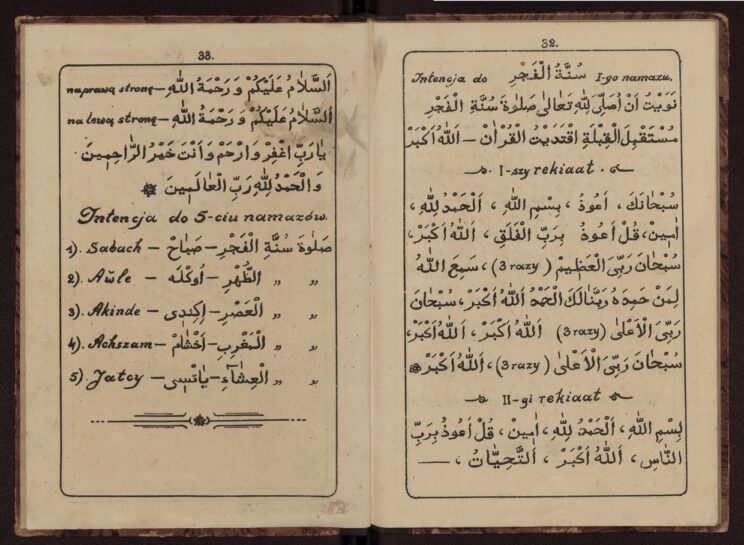 32.
Intencja do سُنَّةُ الْفَجْرِ I-go namazu.
نَوَيْتُ اَنْ اُصَلِّىَ لِلّٰهِ تَعَالٰى صَلٰوةَ سُنَّةِ الْفَجْرِ
مُسْتَقْبِلَ الْقِبْلَةِ اِقْتَدَيْتُ الْقُرْاٰنْ — اَللّٰهُ اَكْبَرْ
I-szy rekiaat.
سُبْحَانَكَ ، اَعُوذُ ، بِسْمِ اللّٰهِ ، اَلْحَمْدُ لِلّٰهِ ،
اٰمِينْ، قُلْ اَعُوذُ بِرَبِّ الْفَلَقِ ، اَللّٰهُ اَكْبَرْ،
سُبْحَانَ رَبِّىَ الْعَظِيمْ (3 razy) ، سَمِعَ اللّٰهُ
لِمَنْ حَمِدَهُ رَبَّنَا لَكَ الْحَمْدُ اَللّٰهُ اَكْبَرْ، سُبْحَانَ
رَبِّىَ الْاَعْلٰى (3 razy) اَللّٰهُ اَكْبَرْ ، اَللّٰهُ اَكْبَرْ،
سُبْحَانَ رَبِّىَ الْاَعْلٰى (3 razy) ، اَللّٰهُ اَكْبَرْ
II-gi rekiaat
بِسْمِ اللّٰهِ ، اَلْحَمْدُ لِلّٰهِ ، اٰمِينْ ، قُلْ اَعُوذُ بِرَبِّ
النَّاسِ ، اَللّٰهُ اَكْبَرْ ، اَلتَّحِيَّاتُ ، —
33.
na prawą stronę — اَلسَّلَامُ عَلَيْكُمْ وَرَحْمَةُ اللّٰهِ
na lewą stronę — اَلسَّلَامُ عَلَيْكُمْ وَرَحْمَةُ اللّٰهِ
يٰارَبِّ اغْفِرْ وَارْحَمْ وَاَنْتَ خَيْرُ الرَّاحِمِينَ
وَالْحَمْدُ لِلّٰهِ رَبِّ الْعَالَمِينَ
Intencja do 5-ciu namazów.
1). Sabach — صَبَاحْ — صَلٰوةَ سُنَّةِ الْفَجْرِ
2) Aŭle — اُوكْلَه — الظُّهْرِ " "
3). Akinde — اِكِنْدِى — الْعَصْرِ " "
4). Achszam — اَخْشَامْ — الْمَغْرِبِ " "
5). Jatcy — يَاتْسِى — الْعِشَاءِ " "